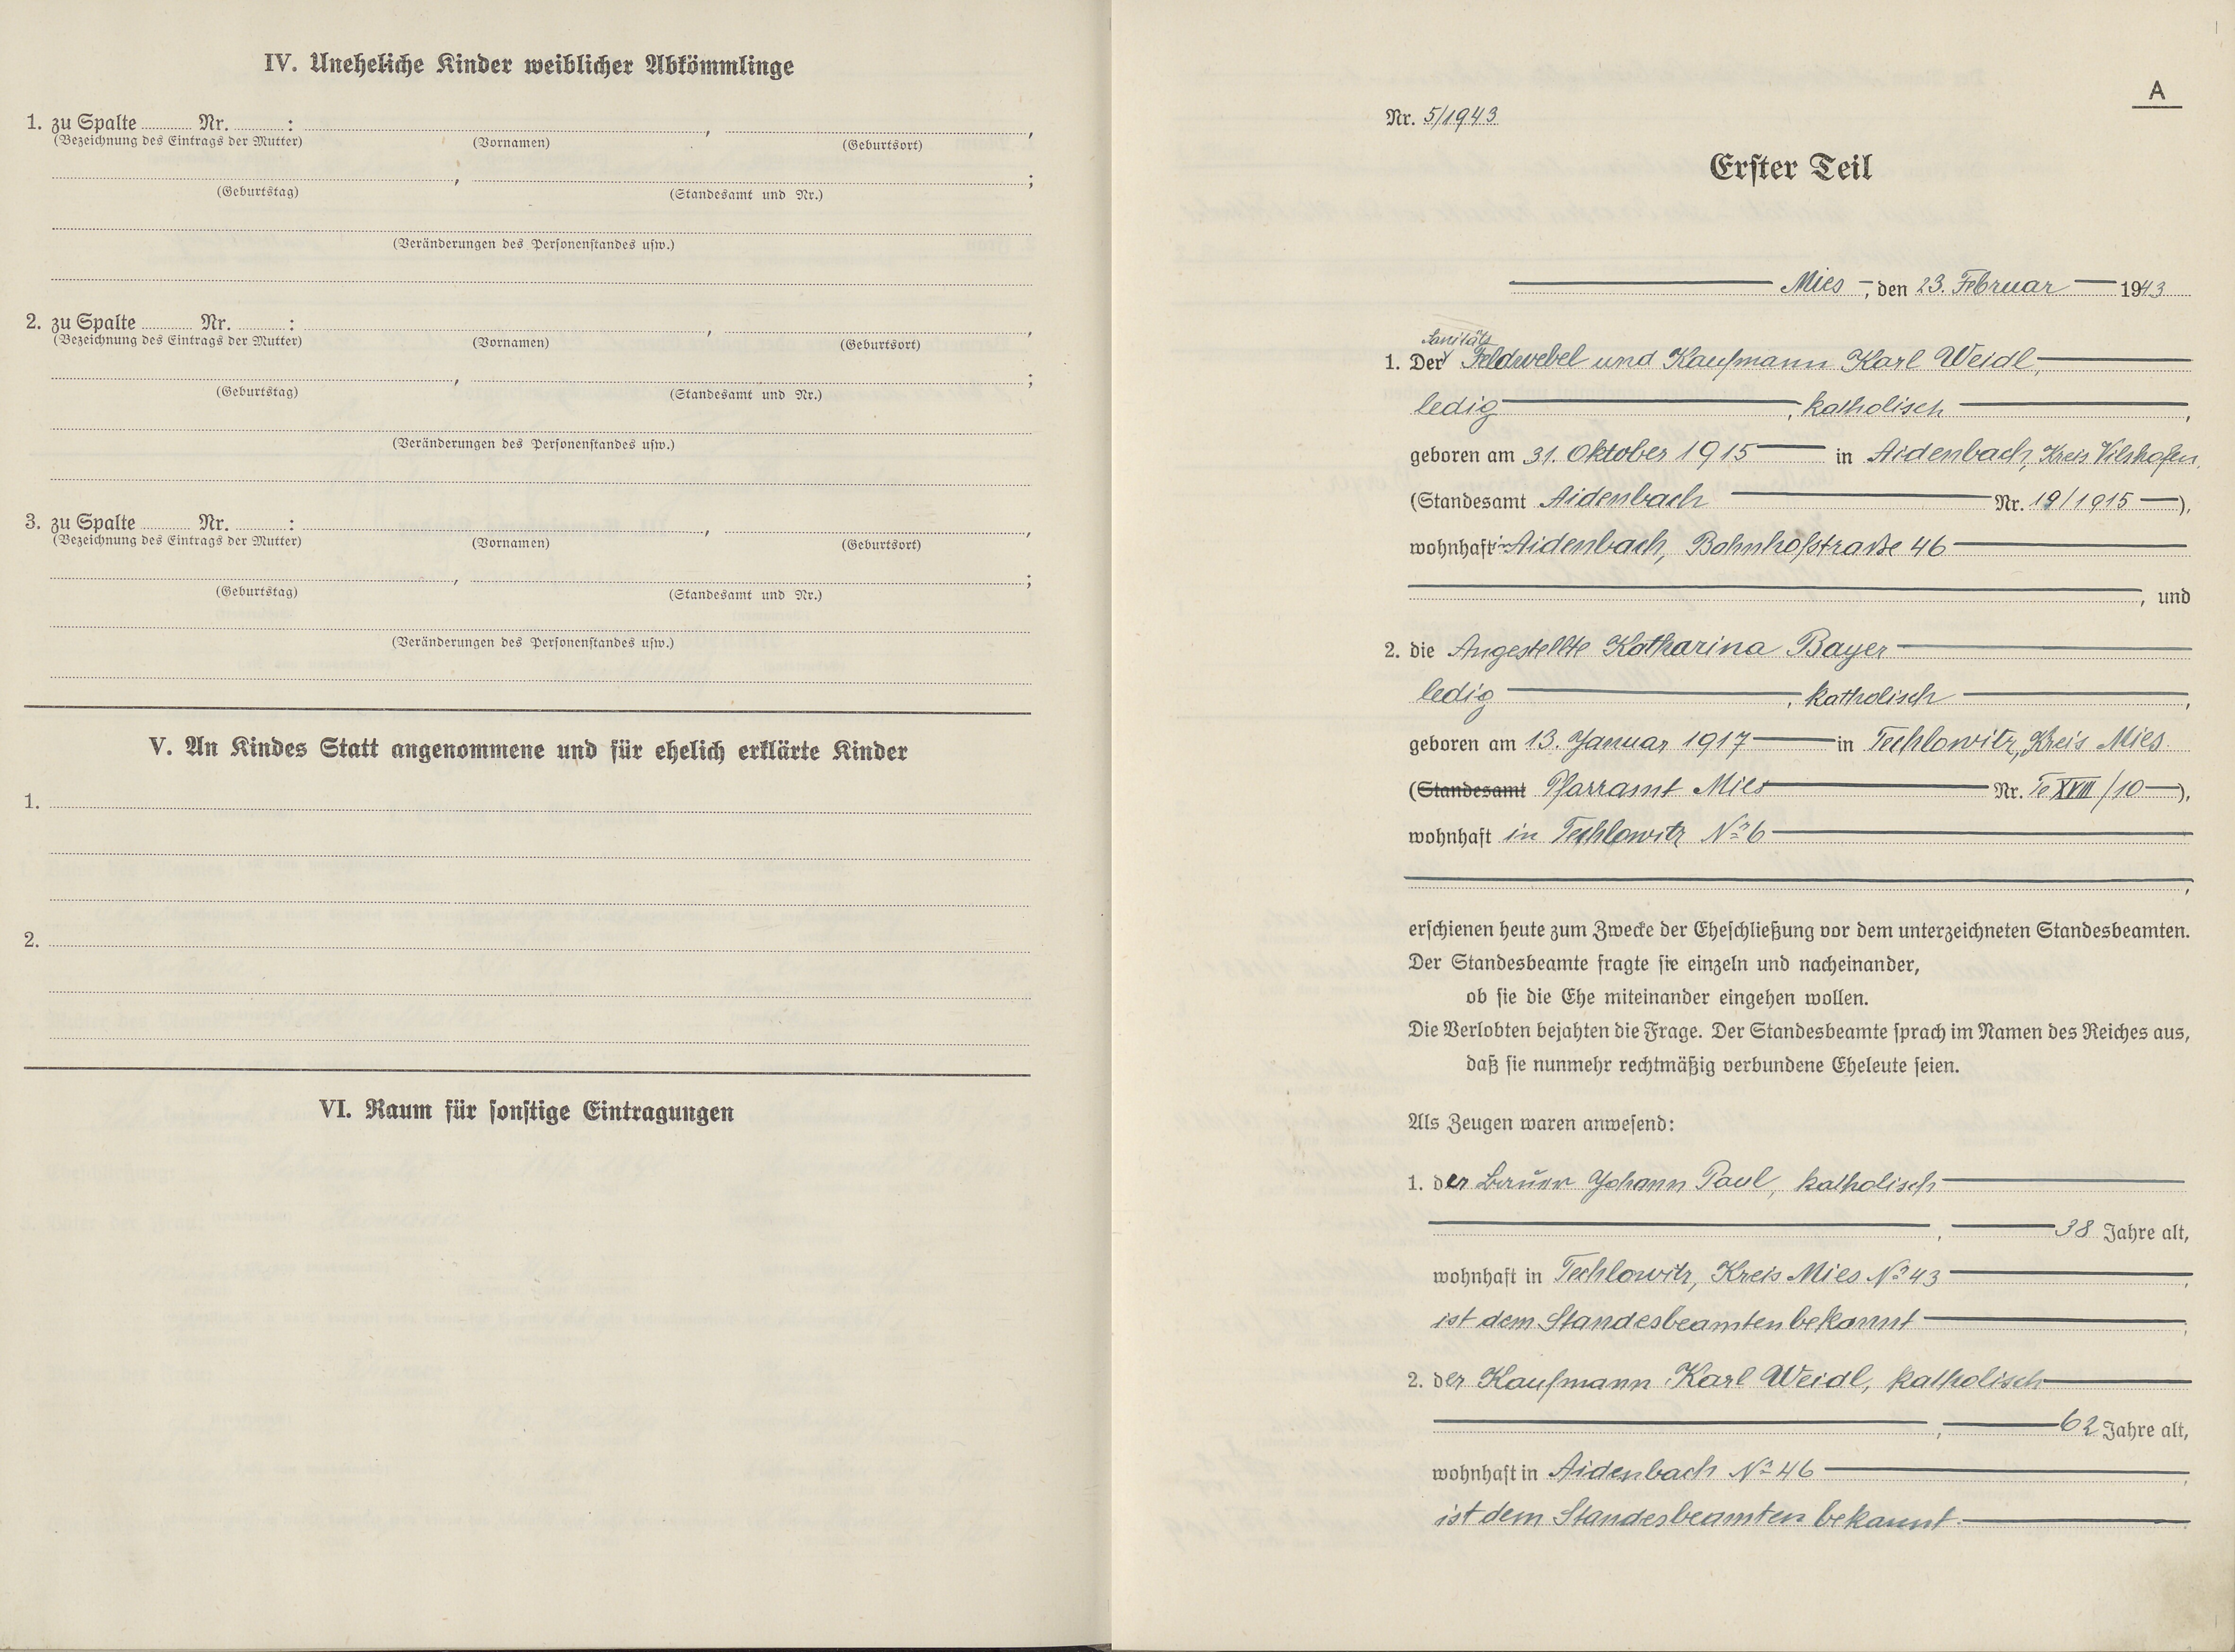 IV. Uneheliche Kinder weiblicher Abkömmlinge
1. zu Spalte ........ Nr. ........ : ........ , ........ ,
(Bezeichnung des Eintrags der Mutter) (Vornamen) (Geburtsort)
........ , ........ ;
(Geburtstag) (Standesamt und Nr.)
(Veränderungen des Personenstandes usw.)
2. zu Spalte ........ Nr. ........ : ........ , ........ ,
(Bezeichnung des Eintrags der Mutter) (Vornamen) (Geburtsort)
........ , ........ ;
(Geburtstag) (Standesamt und Nr.)
(Veränderungen des Personenstandes usw.)
3. zu Spalte ........ Nr. ........ : ........ , ........ ,
(Bezeichnung des Eintrags der Mutter) (Vornamen) (Geburtsort)
........ , ........ ;
(Geburtstag) (Standesamt und Nr.)
(Veränderungen des Personenstandes usw.)
V. An Kindes Statt angenommene und für ehelich erklärte Kinder
1.
2.
VI. Raum für sonstige Eintragungen
A
Nr. 5/1943
Erster Teil
Mies, den 23. Februar 1943
Sanitäts
1. Der Feldwebel und Kaufmann Karl Weidl,
ledig, katholisch,
geboren am 31. Oktober 1915 in Aidenbach, Kreis Vilshofen,
(Standesamt Aidenbach Nr. 19/1915),
wohnhaft in Aidenbach, Bahnhofstraße 46
, und
2. die Angestellte Katharina Bayer
ledig, katholisch,
geboren am 13. Januar 1917 in Techlowitz, Kreis Mies
(Standesamt Pfarramt Mies Nr. Te XVIII/10),
wohnhaft in Techlowitz Nr 6
,
erschienen heute zum Zwecke der Eheschließung vor dem unterzeichneten Standesbeamten.
Der Standesbeamte fragte sie einzeln und nacheinander,
ob sie die Ehe miteinander eingehen wollen.
Die Verlobten bejahten die Frage. Der Standesbeamte sprach im Namen des Reiches aus,
daß sie nunmehr rechtmäßig verbundene Eheleute seien.
Als Zeugen waren anwesend:
1. der Bauer Johann Paul, katholisch
, 38 Jahre alt,
wohnhaft in Techlowitz, Kreis Mies Nr 43,
ist dem Standesbeamten bekannt;
2. der Kaufmann Karl Weidl, katholisch
, 62 Jahre alt,
wohnhaft in Aidenbach Nr 46,
ist dem Standesbeamten bekannt.